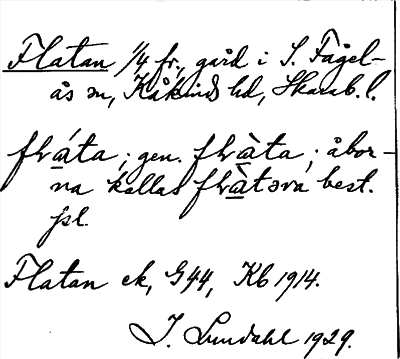 Flatan 1/4 fr., gård i S. Fågel-
ås sn, Kåkinds hd, Skarab. l.
fláta; gen. flàta; åbor-
na kallas flàtsra best.
pl.
Flatan ek, G44, Kb 1914.
I. Lundahl 1929.